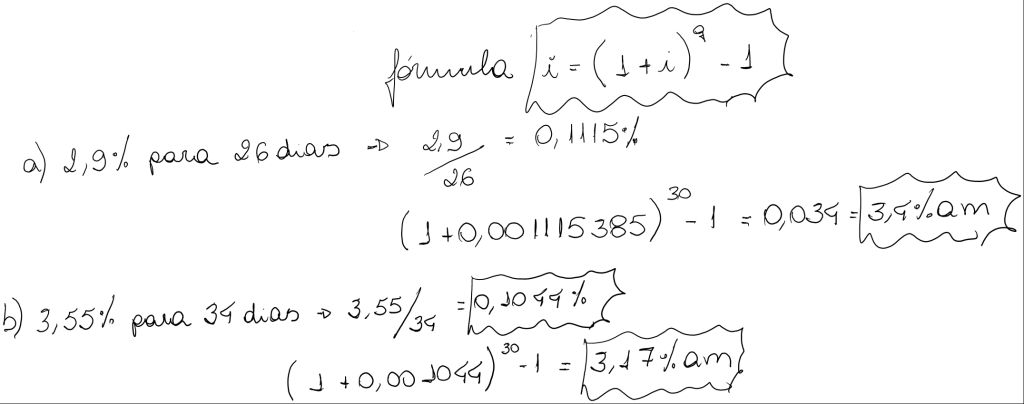 fórmula i = (1 + i)^q - 1
a) 2,9% para 26 dias ⇒ 2,9/26 = 0,1115%
(1 + 0,001115385)^30 - 1 = 0,034 = 3,4% am
b) 3,55% para 34 dias ⇒ 3,55/34 = 0,1044%
(1 + 0,001044)^30 - 1 = 3,17% am